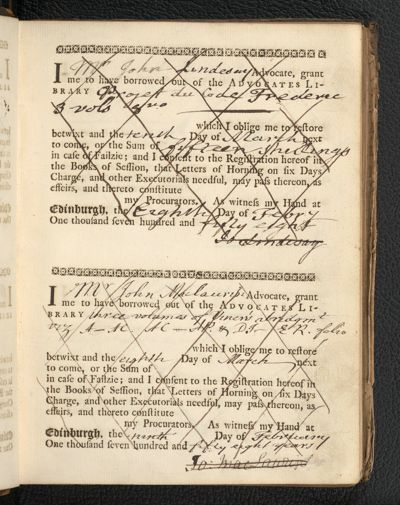 I Mr John Lindesay Advocate, grant
me to have borrowed out of the ADVOCATES LI-
BRARY Projet du Code Frederic
3 vols 8vo
which I oblige me to restore
betwixt and the tenth Day of March next
to come, or the Sum of fifteen Shillings
in case of Failzie; and I consent to the Registration hereof in
the Books of Session, that Letters of Horning on six Days
Charge, and other Executorials needful, may pass thereon, as
effeirs, and thereto constitute
my Procurators. As witness my Hand at
Edinburgh, the Eighth Day of Febry
One thousand seven hundred and fifty eight
Jo Lindesay
I Mr John Maclaurin Advocate, grant
me to have borrowed out of the ADVOCATES LI-
BRARY three volumes of Viners abridgmt
viz A—AC AC— & D.t E R. folio
which I oblige me to restore
betwixt and the eighth Day of March next
to come, or the Sum of
in case of Failzie; and I consent to the Registration hereof in
the Books of Session, that Letters of Horning on six Days
Charge, and other Executorials needful, may pass thereon, as
effeirs, and thereto constitute
my Procurators. As witness my Hand at
Edinburgh, the ninth Day of February
One thousand seven hundred and fifty eight years
Jo: Maclaurin